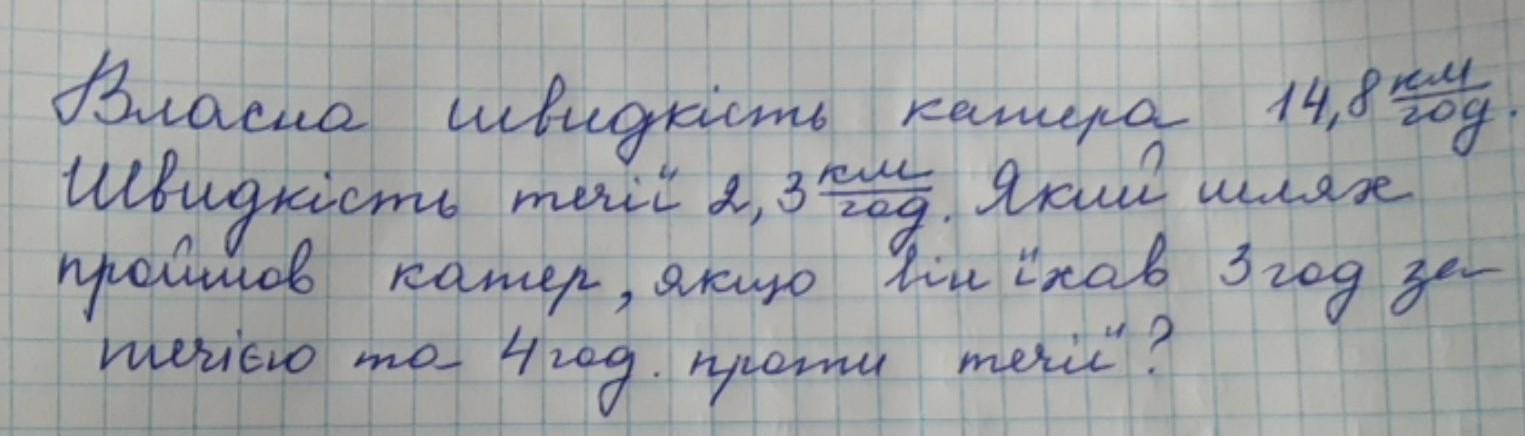 Власна швидкість катера 14,8 км/год.
Швидкість течії 2,3 км/год. Який шлях
пройшов катер, якщо він їхав 3 год за
течією та 4 год. проти течії?